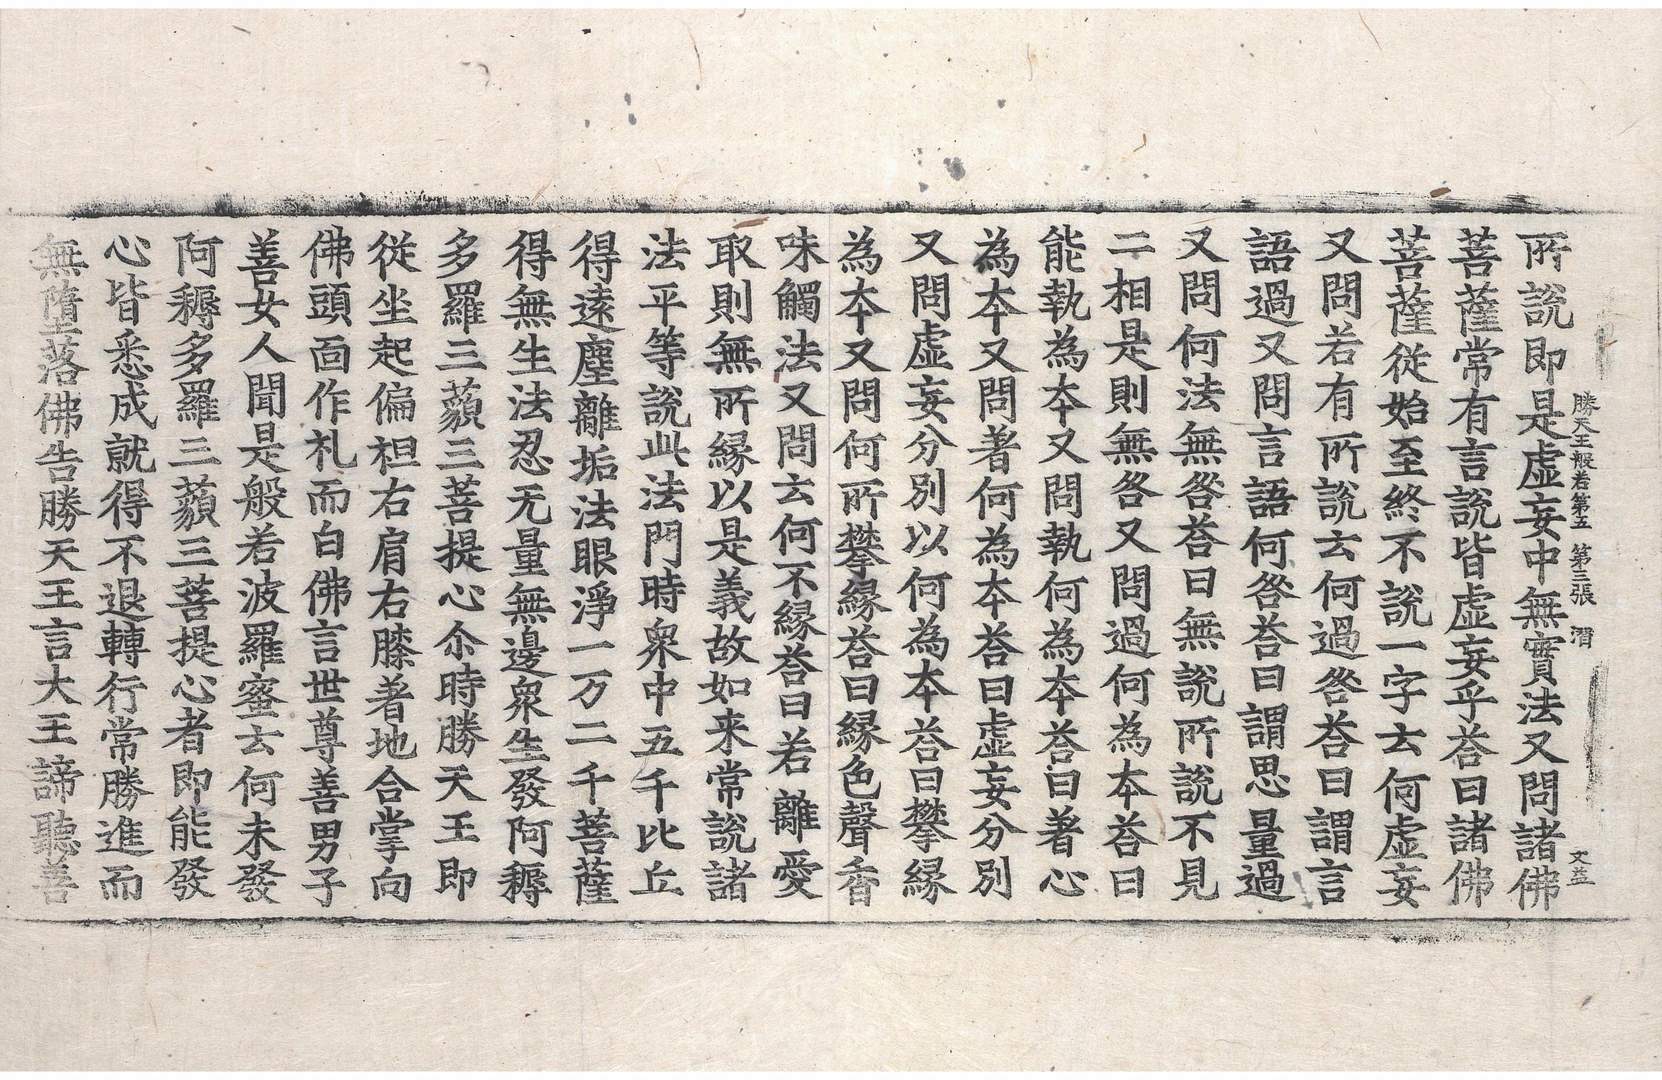 勝天王般若第五　第三張　潛　文益
所說即是虛妄中無實法又問諸佛
菩薩常有言說皆虛妄乎荅曰諸佛
菩薩從始至終不說一字去何虛妄
又問若有所說去何過咎荅曰謂言
語過又問言語何咎荅曰謂思量過
又問何法無咎荅曰無說所說不見
二相是則無咎又問過何為本荅曰
能執為本又問執何為本荅曰著心
為本又問著何為本荅曰虛妄分別
又問虛妄分別以何為本荅曰攀緣
為本又問何所攀緣荅曰緣色聲香
味觸法又問云何不緣荅曰若離愛
取則無所緣以是義故如来常說諸
法平等說此法門時衆中五千比丘
得遠塵離垢法眼淨一万二千菩薩
得無生法忍无量無邊衆生發阿耨
多羅三藐三菩提心尒時勝天王即
從坐起偏袒右肩右膝著地合掌向
佛頭面作礼而白佛言世尊善男子
善女人聞是般若波羅蜜去何未發
阿耨多羅三藐三菩提心者即能發
心皆悉成就得不退轉行常勝進而
無墮落佛告勝天王言大王諦聽善